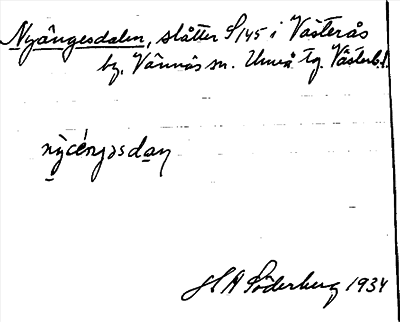 Nyängesdalen, slåtter S145 i Västerås
by, Vännäs sn. Umeå tg. Västerb.l.
nỳcéŋɟəsdaɳ
H A Söderberg 1934